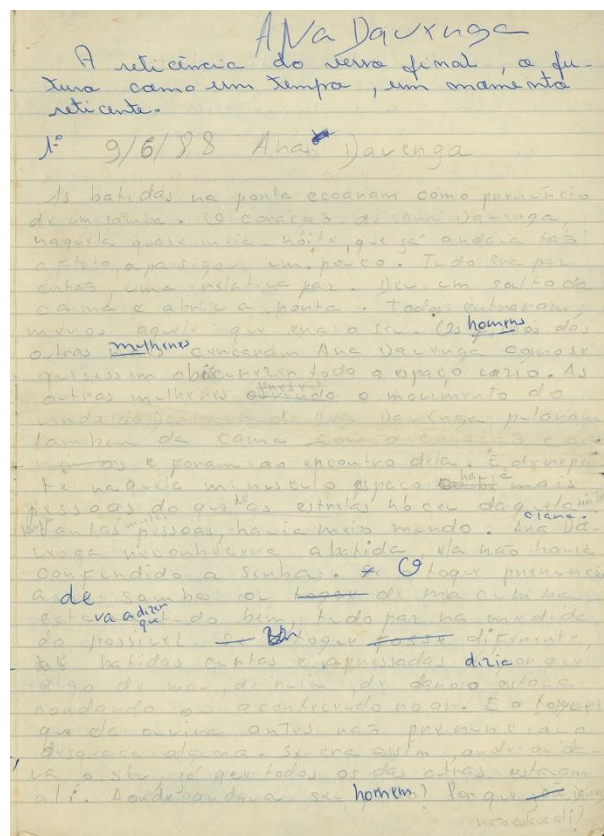 Ana Davenga
A reticência do verso final, o fu-
turo como um tempo, um momento
reticente.
1º 9/6/88 Ana Davenga
As batidas na porta ecoaram como prenúncio
de um samba. O coração de Ana Davenga,
naquela quase meia-noite, que já andava tão
aflito, apasigou um pouco. Tudo era paz
então, uma relativa paz. Deu um salto da
cama e abriu a porta. Todos entraram,
menos aquele que era o seu. Os homens os das
outras mulheres cercaram Ana Davenga como se
quisessem todo o espaço vazio. As
outras mulheres o movimento do
Ana Davenga pularam
também da cama
e foram ao encontro dela. E de repen
te naquele minusculo espaço havia mais
pessoas do que as estrelas no céu daquela noite
tantas pessoas, havia meio mundo. Ana Da-
venga reconhecera a batida, ela não havia
confundido a senha. O toque prenuncia
de samba ou de macumba
estava a dizer que do bem, tudo paz na medida
do possível. Um toque diferente,
batidas curtas e apressadas dizia que
algo de mau, de ruim, de danoso estava
rondando ou acontecendo no ar. E o toque
que ela ouvira antes não prenunciava
desgraça alguma. Se era assim, onde anda-
va o seu, já que todos os das outras estavam
ali. Aonde andava seu homem? Por que
não estava ali?